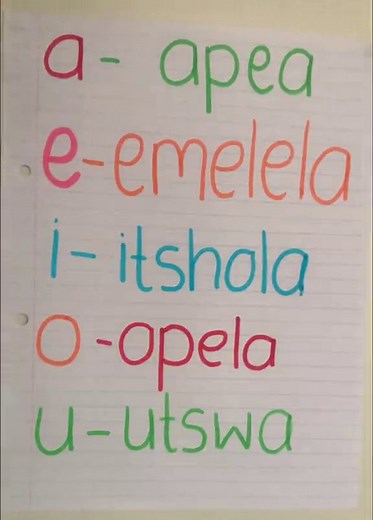 a- apea
e-emelela
i-itshola
o-opela
u-utswa